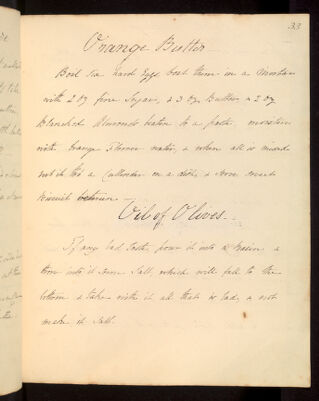 33
Orange Butter
Boil six hard Eggs beat them in a Mortar
with 2 oz fine Sugar, & 3 oz Butter & 2 oz
Blanched Almonds beaten to a paste moisten
with Orange Flower water, & when all is mixed
rub it thro' a Cullender on a dish, & serve sweet
biscuit between
Oil of Olives
If any bad taste, pour it into a Basin &
throw into it some Salt, which will fall to the
bottom & take with it all that is bad, & not
make it Salt.